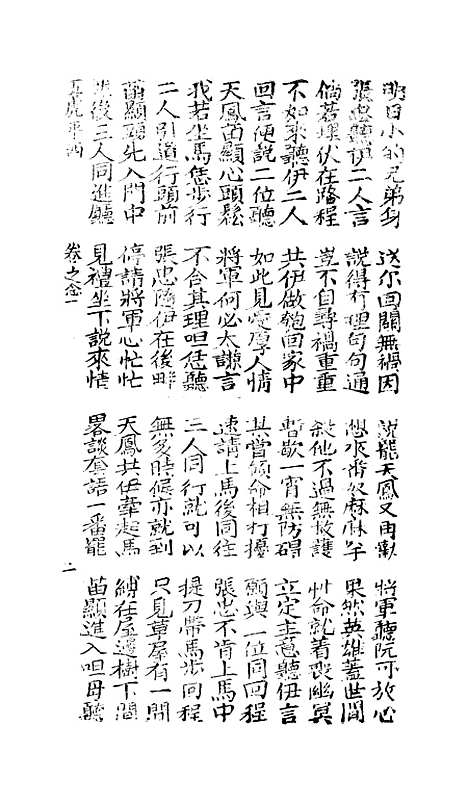 明日小的兄弟身 送尔回關無禍因 說罷天鳳又再勸 將軍聽阮可放心
張忠聽伊二人言 說得有理句句通 想來番奴麻麻年 果然英雄蓋世間
倘若埋伏在路程 豈不自尋禍重重 殺他不過無救護 性命就着喪幽冥
不如來聽伊二人 共伊做匏回家中 暫歇一宵無防碍 立定主意聽伊言
回言便說二位聽 如此見愛厚人情 其當傾命相打擾 願與一位同回程
天鳳苗顯心頭鬆 將軍何必太謙言 速請上馬後同往 張忠不肯上馬中
我若坐馬恁步行 不合其理呾恁聽 三人同行就可以 提刀帶馬步同程
二人引道行頭前 張忠隨伊在後畔 無多時候亦就到 只見草屋有一間
苗顯頭先入門中 停請將軍心忙忙 天鳳共伊牽起馬 縛在屋邊樹下間
然後三人同進廳 見禮坐下說來情 畧談套語一番罷 苗顯進入呾母聽
五虎平西 卷之念一 二